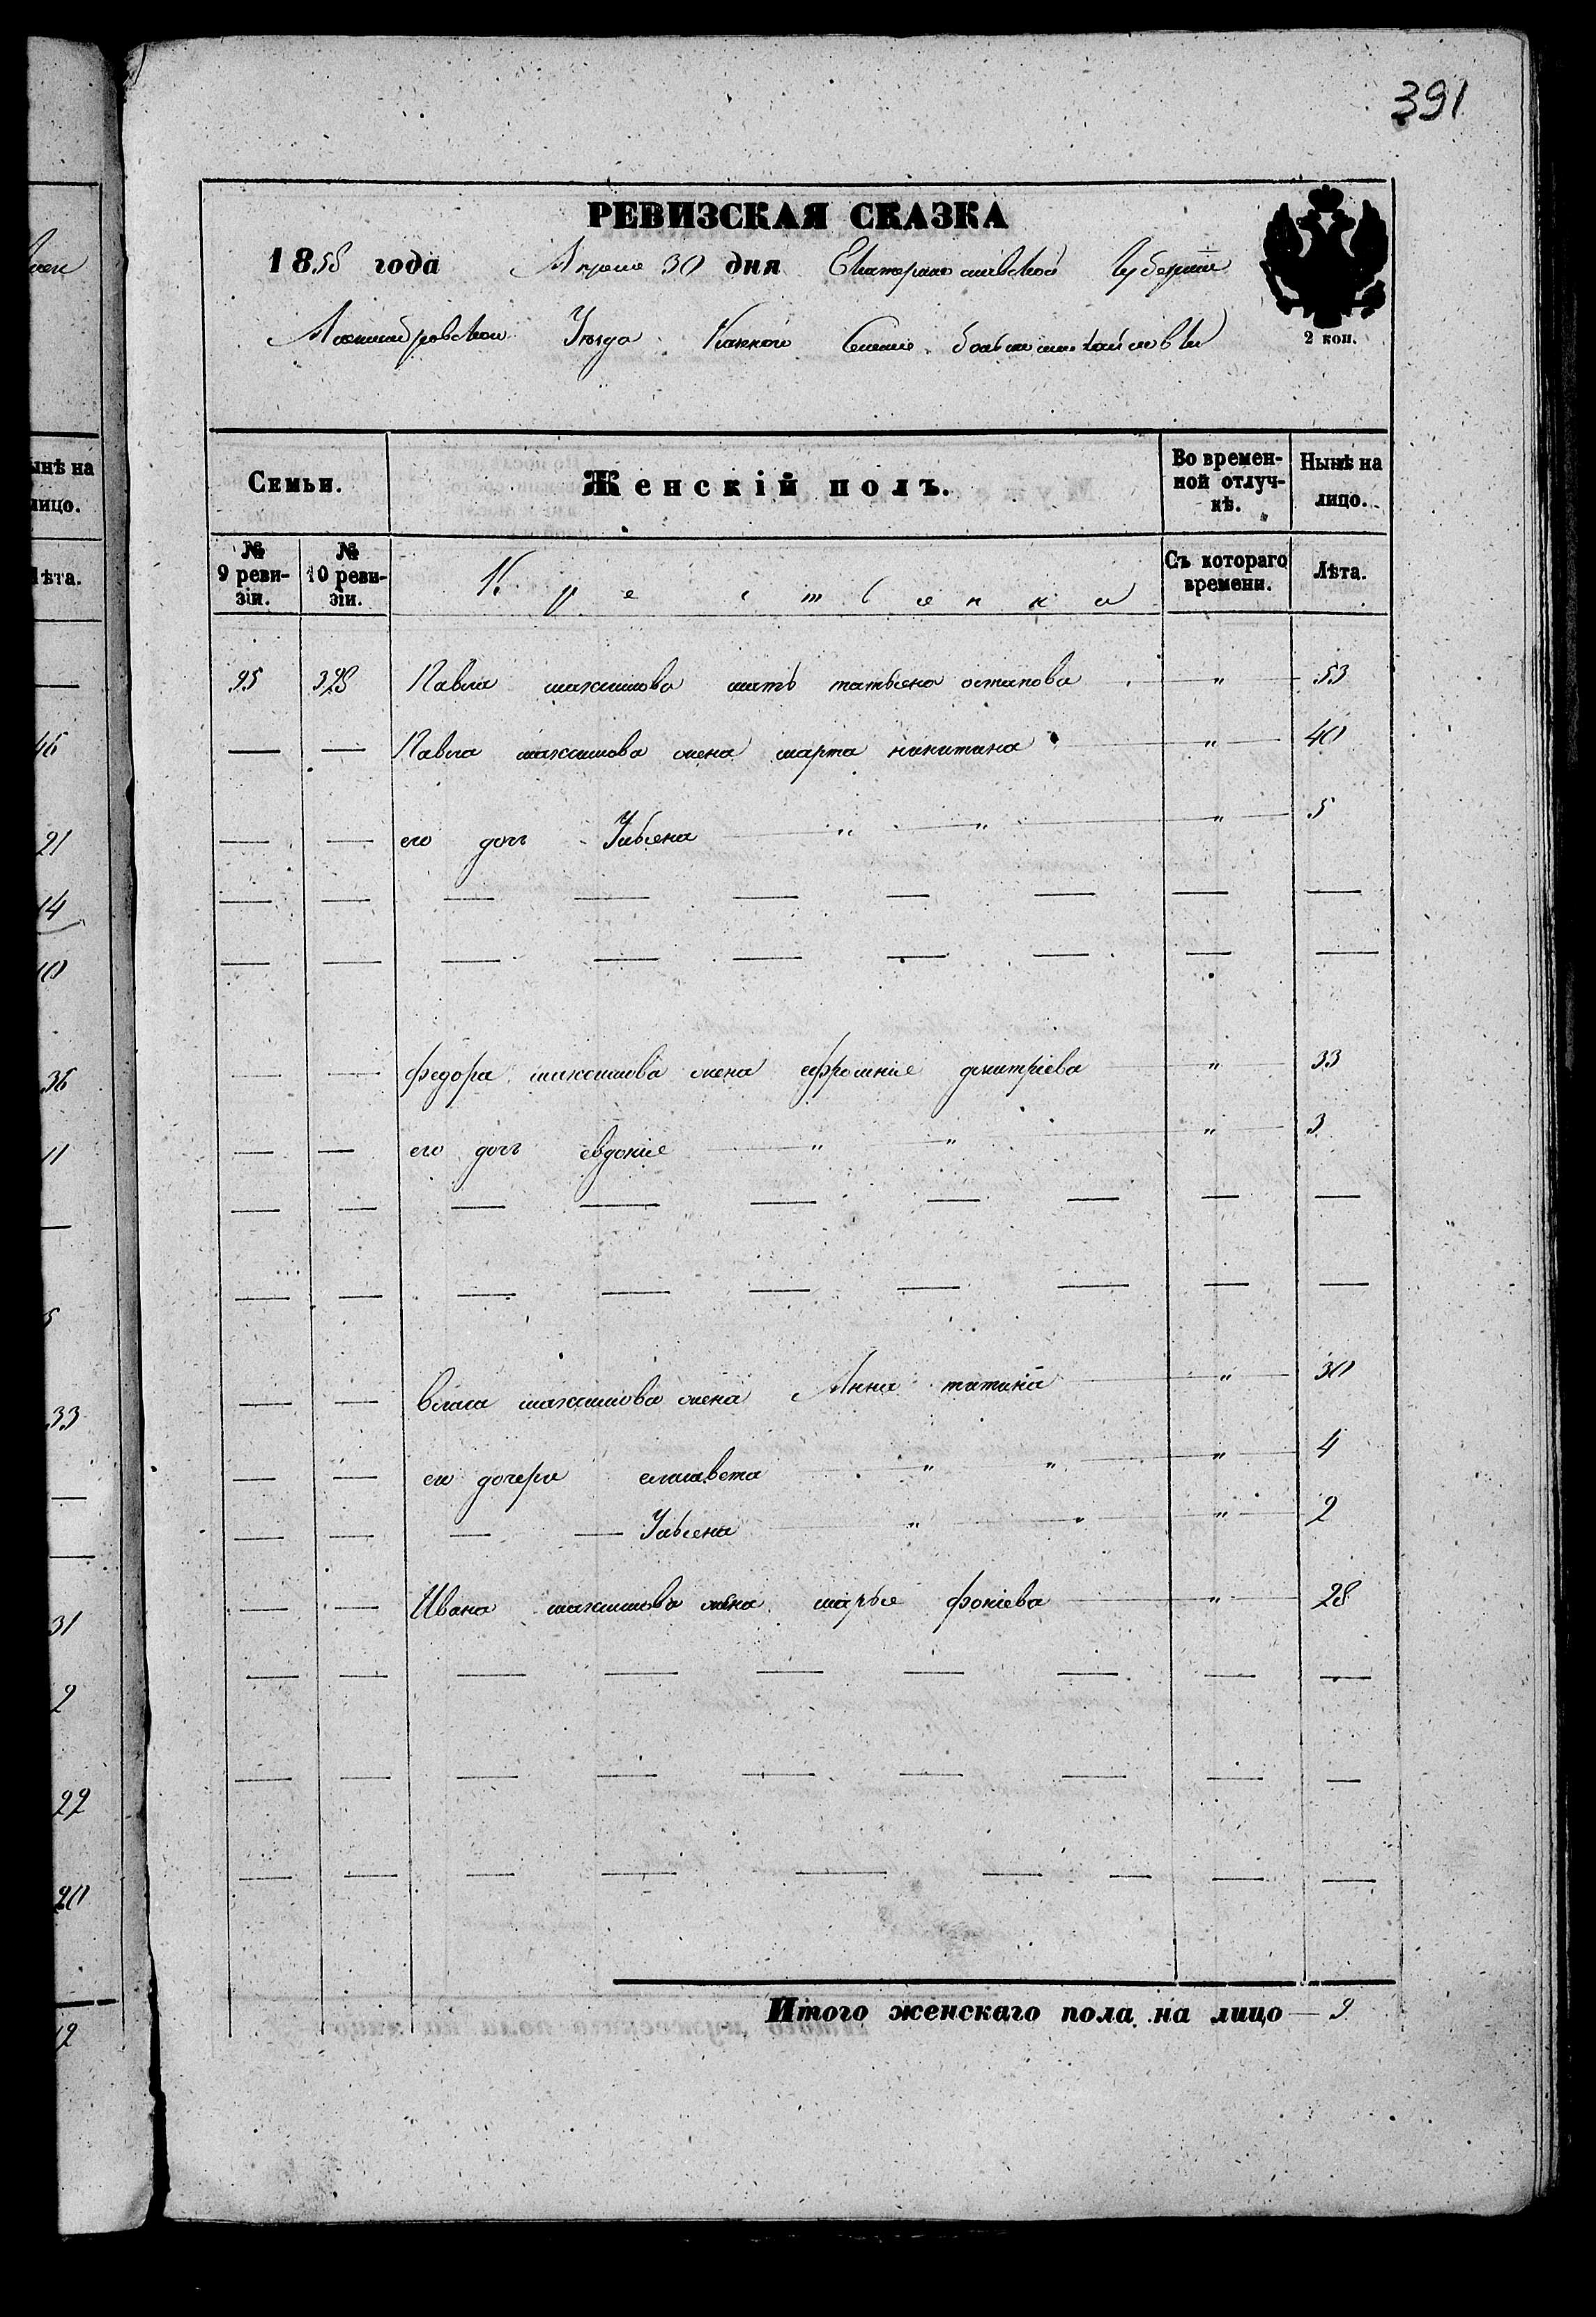 391
РЕВИЗСКАЯ СКАЗКА
1858 года Апреля 30 дня Екатеринославской Губернии
Александровскаго Уезда Казенной Селение большемихайловки
2 коп.
Семьи. Женскій полъ. Во времен-ной отлуч-кѣ. Нынѣ на лицо.
№ 9 реви-зіи. № 10 реви-зіи. Крестьянка Съ котораго времени. Лѣта.
95 328 Павла максимова мать татьяна остапова " 53
— — Павла максимова жена марта никитина " 40
— — его дочь Ульяна " " " 5
— — федора максимова жена ефросиніе дмитріева " 33
— — его дочь евдокіе " " " 3
— — власа максимова жена Анна титина " 30
— — его дочери елисавета " " " 4
— — — — Ульяна " " " 2
— — Ивана максимова жена марья фокіева " 28
Итого женскаго пола на лицо — 9
ынѣ на
лицо.
Лѣта.
46
21
14
10
36
11
33
31
2
22
20